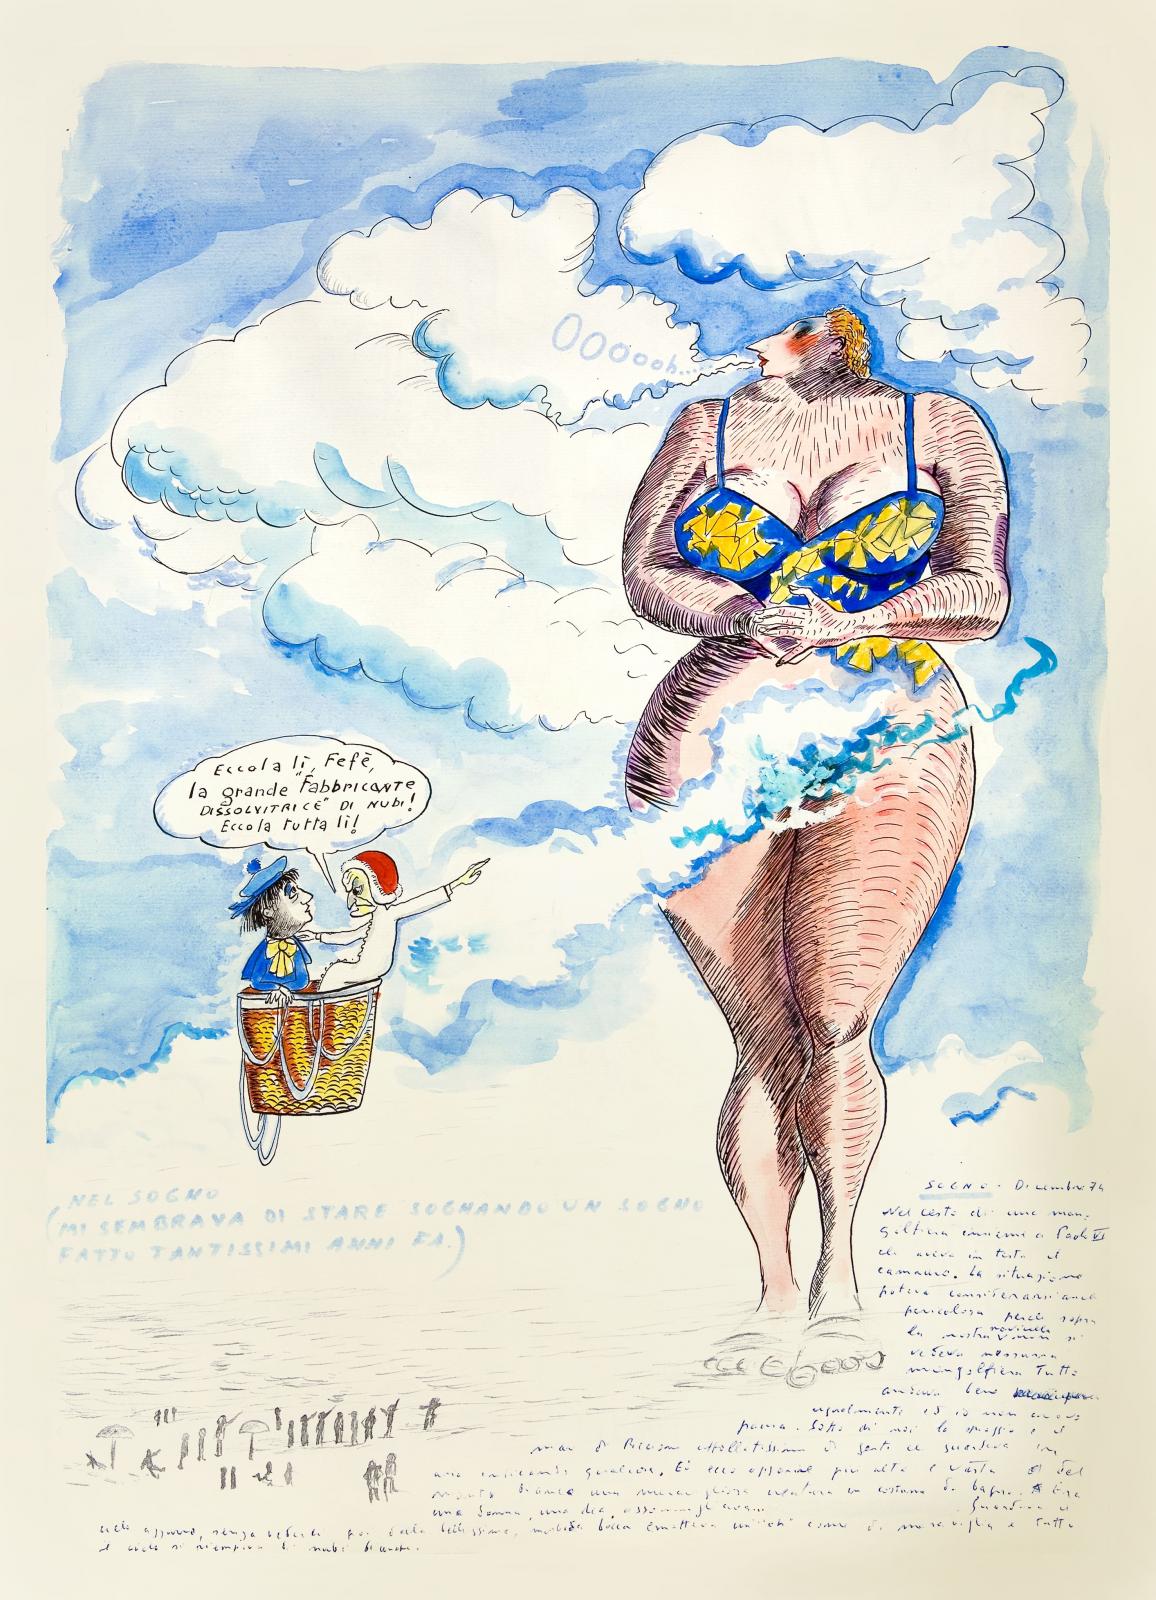 OOoooh....
Eccola lì, Fefè,
la grande "Fabbricante
DISSOLVITRICE" DI NUBI!
Eccola tutta lì!
NEL SOGNO
(MI SEMBRAVA DI STARE SOGNANDO UN SOGNO
FATTO TANTISSIMI ANNI FA.)
SOGNO. Dicembre 74
Nel cesto di una mon=
golfiera insieme a Paolo VI
che aveva in testa il
camauro. La situazione
poteva considerarsi anche
pericolosa perché sopra
la nostra navicella non si
vedeva nessuna
mongolfiera Tutto
andava bene
ugualmente ed io non avevo
paura. Sotto di noi la spiaggia e il
mare di Riccione affollatissimo di gente che guardava in
aria indicando qualcosa. Ed ecco apparire più alta e vasta del
monte bianco una meravigliosa creatura in costume da bagno. Era
una donna, una dea,
Guardava il
cielo azzurro, senza vederci poi dalla bellissima, morbida bocca emetteva un "oh" come di meraviglia e tutto
il cielo si riempiva di nubi bianche.